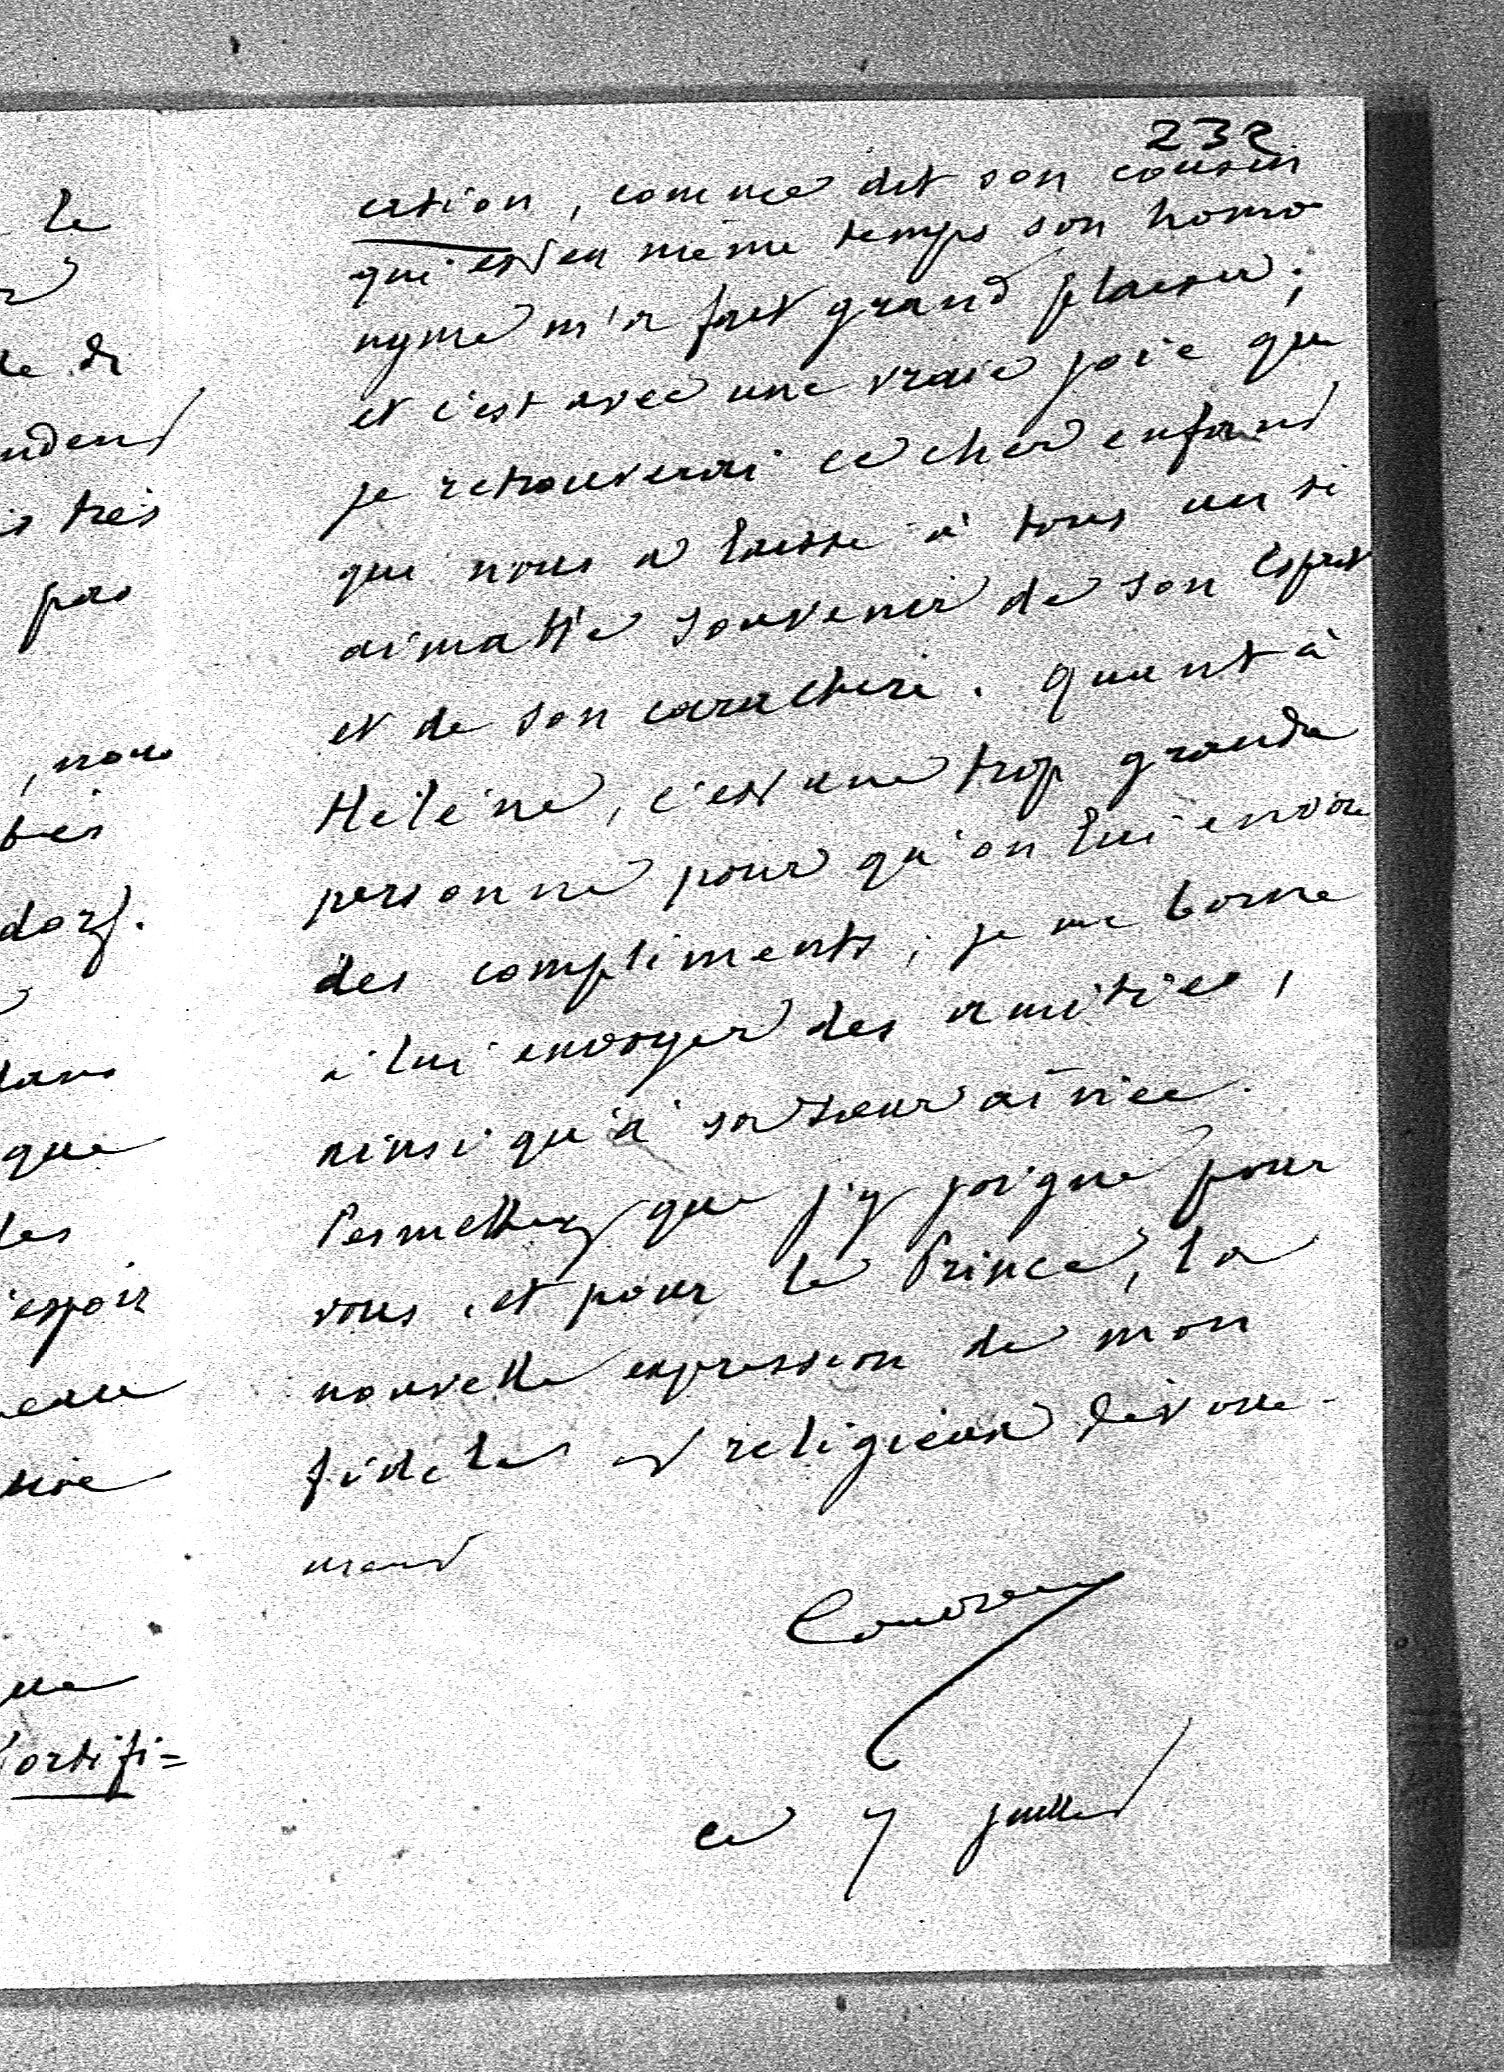 232
le
de
très
pas
, nous
dorf.
que
les
espoir
ortifi=
cation, comme dit son cousin
qui est en même temps son homo
nyme m'a fait grand plaisir ;
et c'est avec une vraie joie que
je retrouverai ce cher enfant
qui nous a laissé à tous un si
aimable souvenir de son esprit
et de son caractère. Quant à
Hélène, c'est une trop grande
personne pour qu'on lui envoie
des compliments ; je me borne
à lui envoyer des amitiés,
ainsi qu'à sa sœur aînée.
Permettez que j'y joigne pour
vous, et pour le Prince, la
nouvelle expression de mon
fidèle et religieux dévoue-
ment
ce 7 juillet